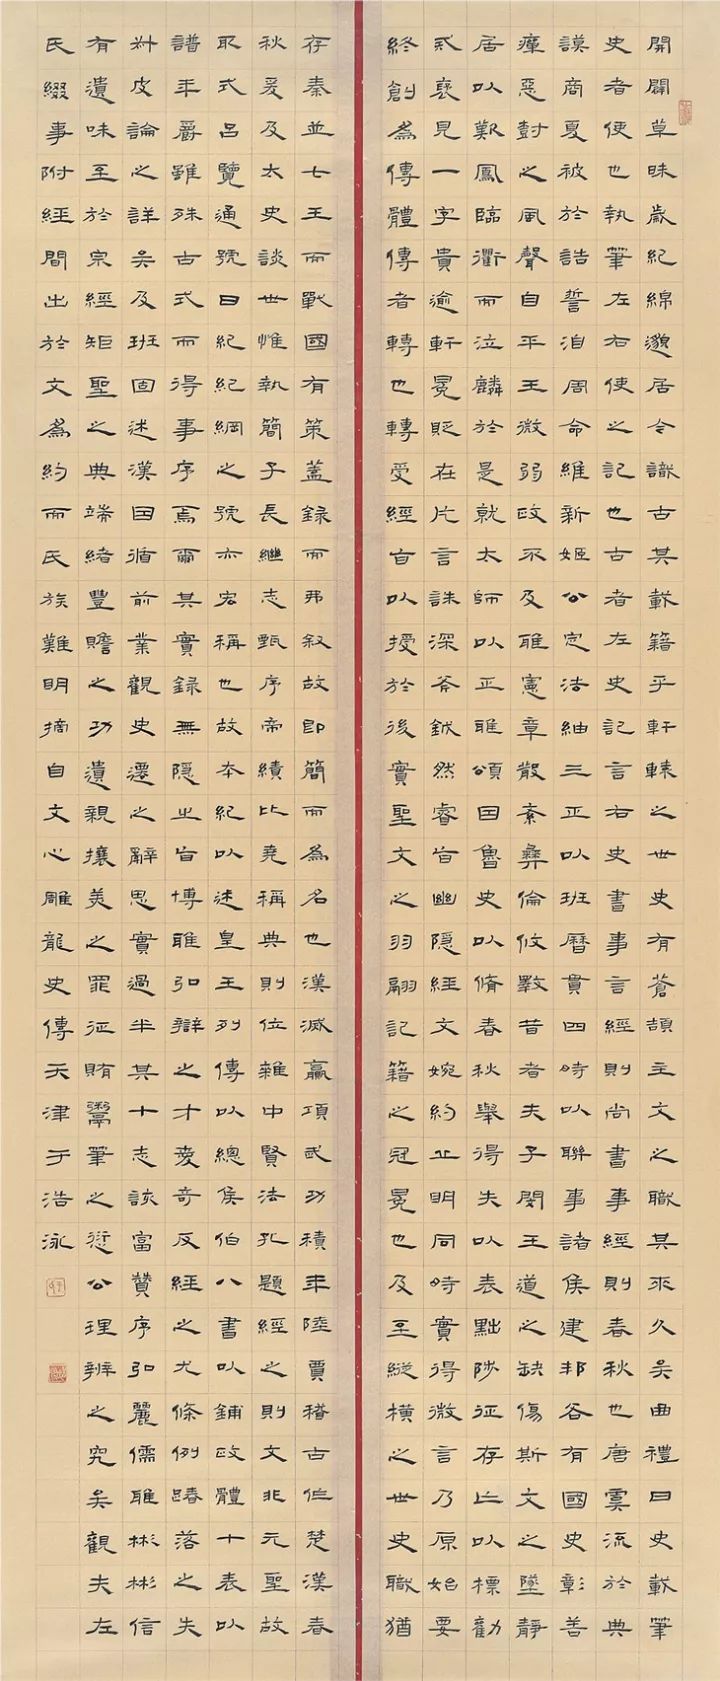 開闢草昧歲紀綿邈居今識古其載籍乎軒轅之世史有蒼頡主文之職其來久矣曲禮曰史載筆
史者使也執筆左右使之記也古者左史記言右史書事言經則尚書事經則春秋也唐虞流於典
謨商夏被於誥誓洎周命維新姬公定法紬三正以班曆貫四時以聯事諸侯建邦各有國史彰善
癉惡尌之風聲自平王微弱政不及雅憲章散紊彝倫攸斁昔者夫子閔王道之缺傷斯文之墜靜
居以歎鳳臨衢而泣麟於是就太師以正雅頌因魯史以脩春秋舉得失以表黜陟征存亡以標勸
戒褒見一字貴逾軒冕貶在片言誅深斧鉞然睿旨幽隱經文婉約丘明同時實得微言乃原始要
終創為傳體傳者轉也轉受經旨以授於後實聖文之羽翮記籍之冠冕也及至縱橫之世史職猶
存秦並七王而戰國有策蓋錄而弗敘故即簡而為名也漢滅嬴項武功積年陸賈稽古作楚漢春
秋爰及太史談世惟執簡子長繼志甄序帝績比堯稱典則位雜中賢法孔題經之則文非元聖故
取式呂覽通號曰紀紀綱之號亦宏稱也故本紀以述皇王列傳以總侯伯八書以鋪政體十表以
譜年爵雖殊古式而得事序焉爾其實錄無隱之旨博雅弘辯之才愛奇反經之尤條例踳落之失
叔皮論之詳矣及班固述漢因循前業觀史遷之辭思實過半其十志該富贊序弘麗儒雅彬彬信
有遺味至於宗經矩聖之典端緒豐贍之功遺親攘美之罪征賄鬻筆之愆公理辨之究矣觀夫左
氏綴事附經間出於文為約而氏族難明摘自文心雕龍史傳天津于浩泳